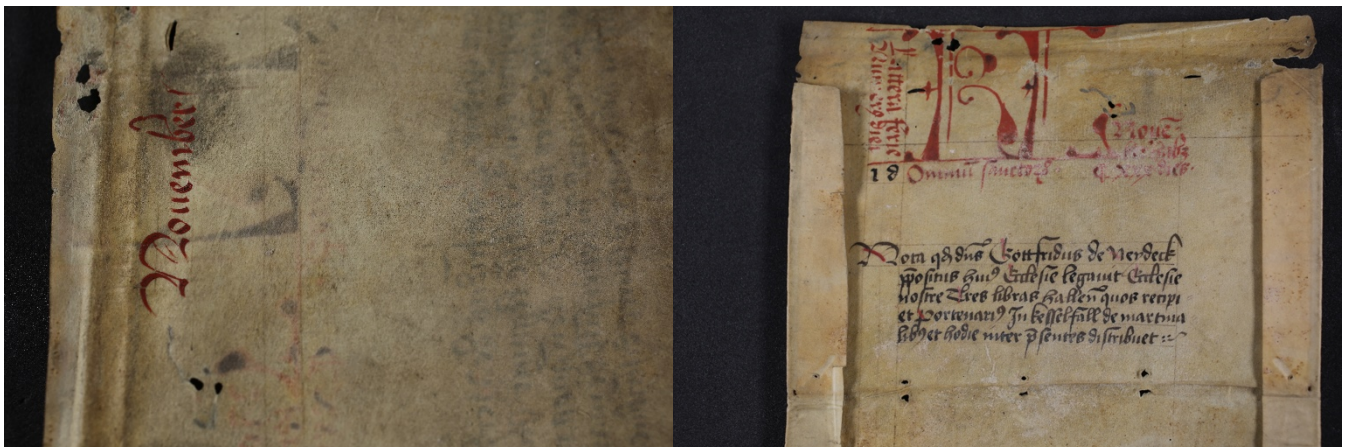 November
littera ferie
KL
Noue᷒
hab3
xxx dies.
1 d Omniū sanctoꝝ
Nota qd dn̄s Gottfridus de Nerdeck
ꝓpositus huiꝰ Ecclesie legauit Ecclesie
nostre Tres libras hallen̄ quos recipi
et portenariꝰ In kesselfall de martina
libꝰ et hodie inter p̄sentes distribuet